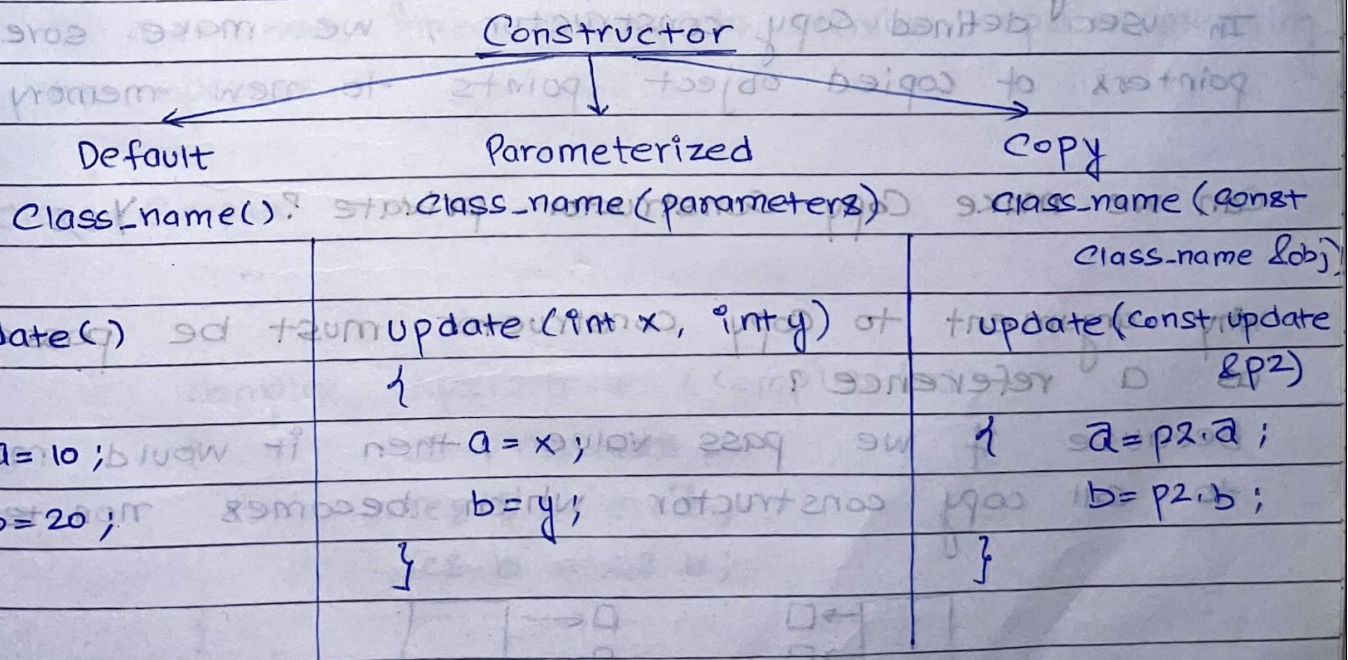 Constructor
Default Parometerized Copy
Class_name() class_name (parameters) class_name (const
Class_name &obj)
date() update (int x, int y) update (const update
{ &p2)
a = 10 ; a = x ; { a = p2.a ;
b = 20 ; b = y ; b = p2.b ;
} }